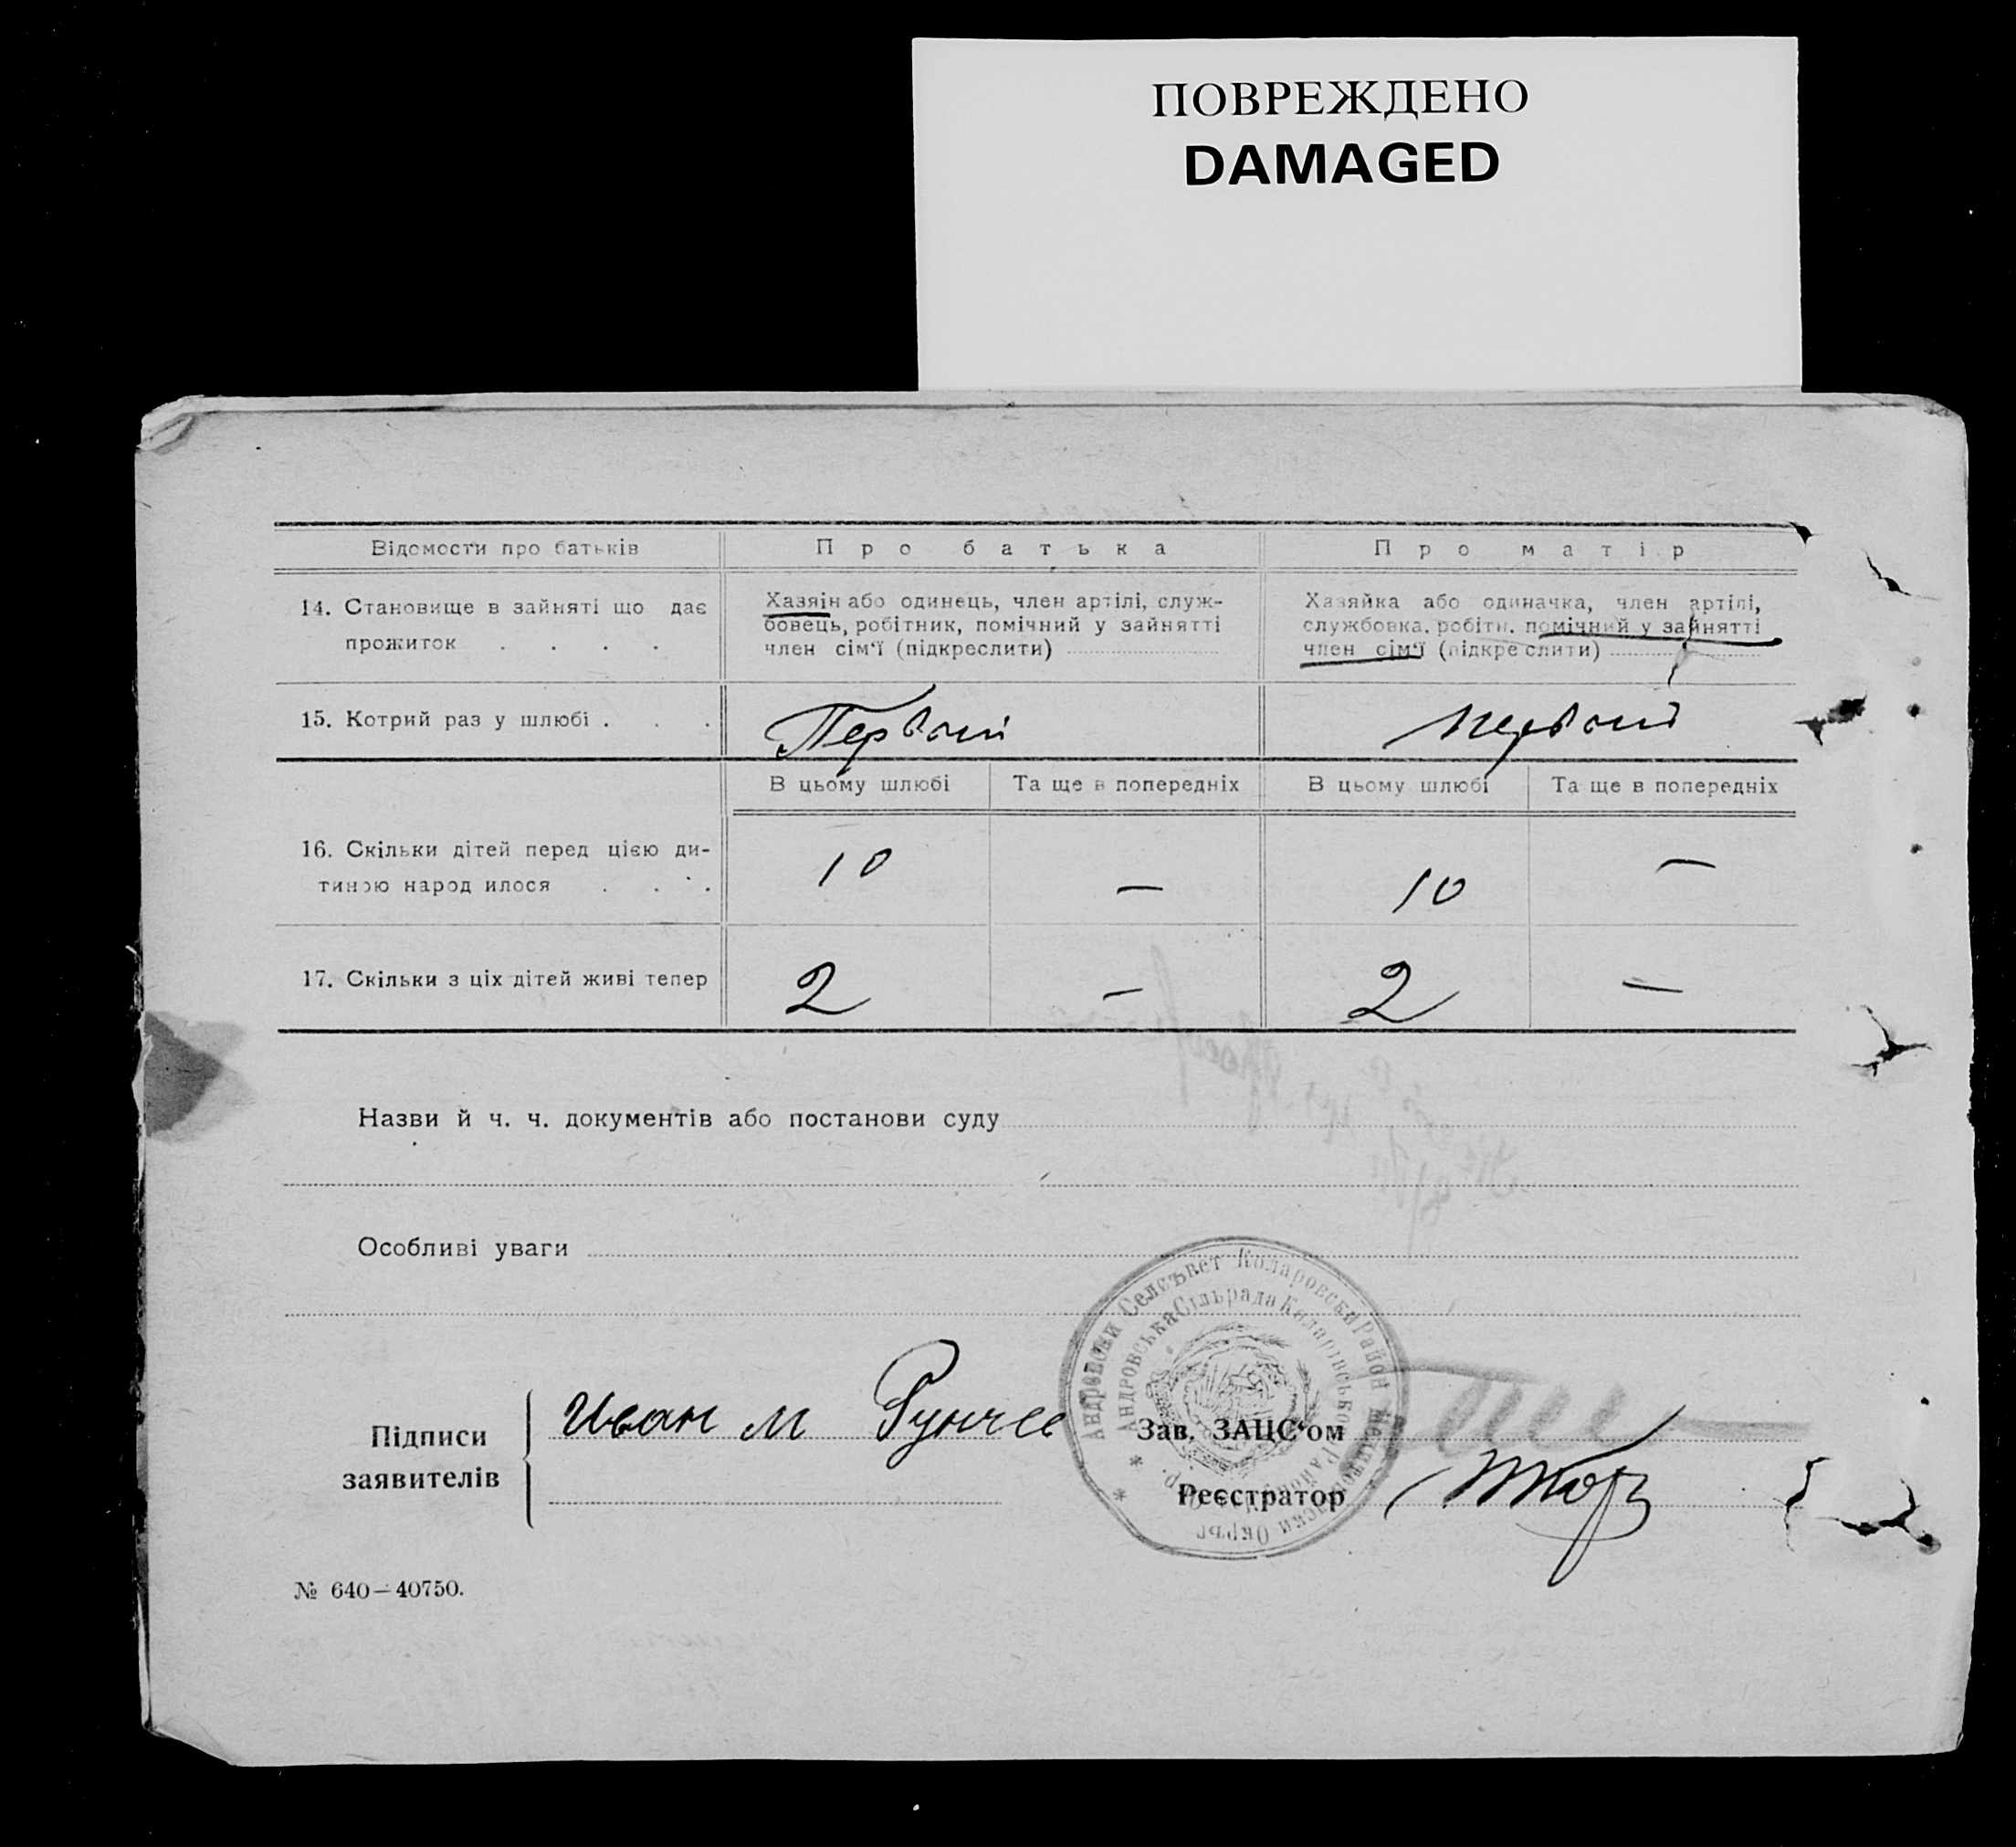 ПОВРЕЖДЕНО
DAMAGED
Відомости про батьків
Про батька
Про матір
14. Становище в зайняті що дає
прожиток . . . .
Хазяін або одинець, член артілі, служ-
бовець, робітник, помічний у зайнятті
член сім'ї (підкреслити)
Хазяйка або одиначка, член артілі,
службовка. робітн. помічний у зайнятті
член сім'ї (підкре слити)
15. Котрий раз у шлюбі . . .
Первый
Первый
В цьому шлюбі
Та ще в попередніх
В цьому шлюбі
Та ще в попередніх
16. Скільки дітей перед цією ди-
тиною народ илося . . .
10
—
10
—
17. Скільки з ціх дітей живі тепер
2
—
2
—
Назви й ч. ч. документів або постанови суду
Особливі уваги
Андровски Селсъвет Коларовски Район Окръг
Андровська Сільрада Коларівського Району
Підписи
заявителів
Иван М Рунчев
Зав. ЗАЦС'ом
Реєстратор
№ 640—40750.